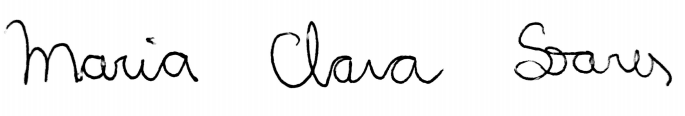 Maria Clara Soares